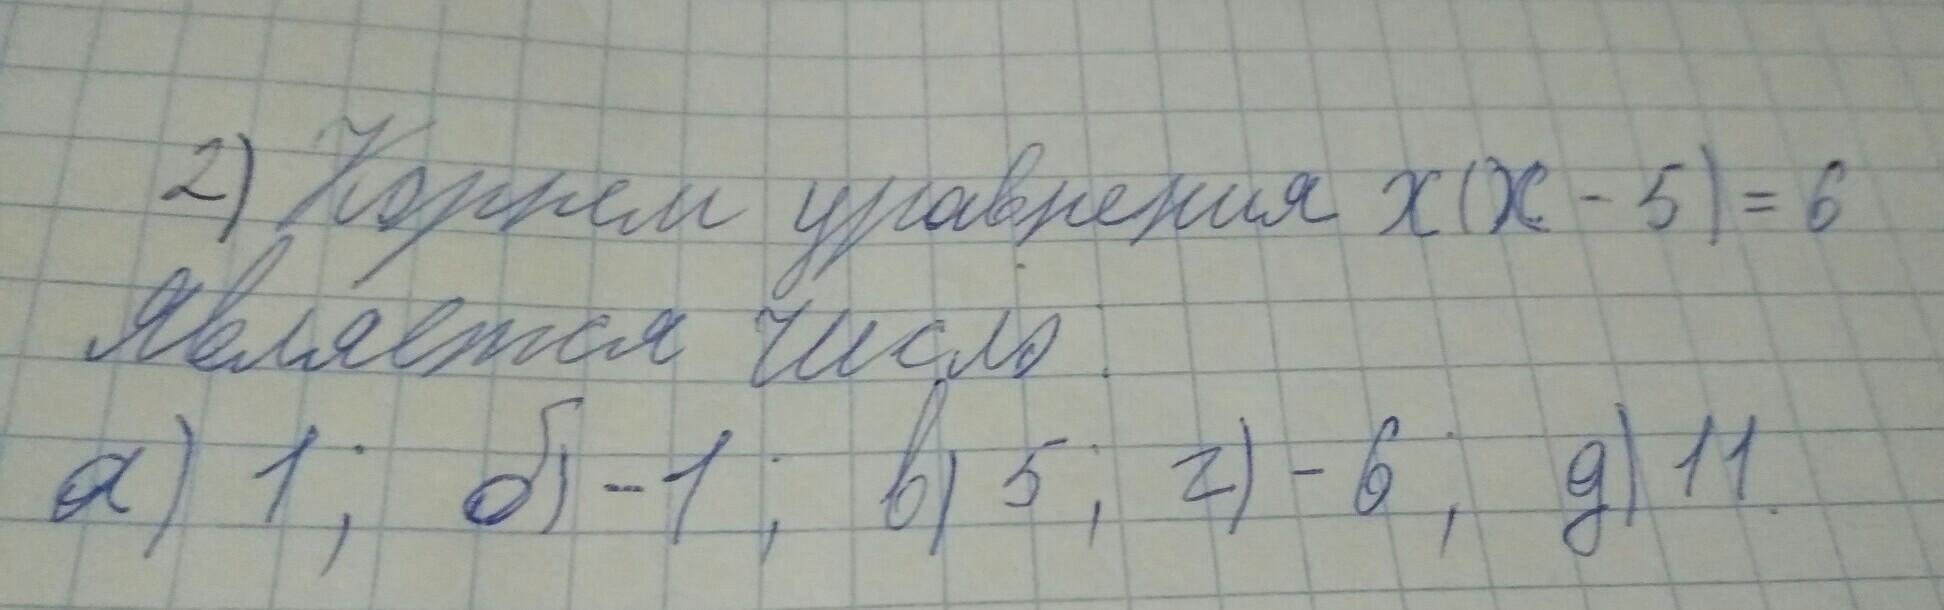 2) Корнем уравнения x(x - 5) = 6
является число:
а) 1; б) -1; в) 5; г) -6; д) 11.